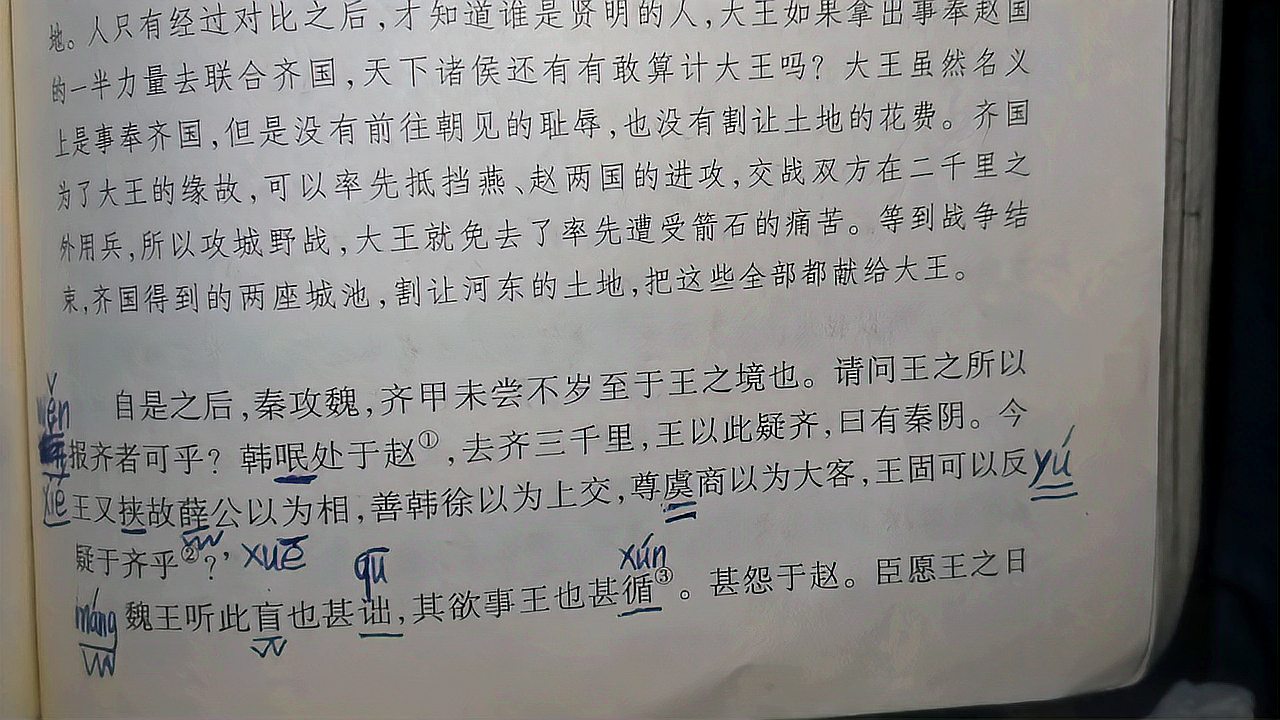 地。人只有经过对比之后,才知道谁是贤明的人,大王如果拿出事奉赵国
的一半力量去联合齐国,天下诸侯还有有敢算计大王吗?大王虽然名义
上是事奉齐国,但是没有前往朝见的耻辱,也没有割让土地的花费。齐国
为了大王的缘故,可以率先抵挡燕、赵两国的进攻,交战双方在二千里之
外用兵,所以攻城野战,大王就免去了率先遭受箭石的痛苦。等到战争结
束,齐国得到的两座城池,割让河东的土地,把这些全部都献给大王。
自是之后,秦攻魏,齐甲未尝不岁至于王之境也。请问王之所以
报齐者可乎?韩呡处于赵①,去齐三千里,王以此疑齐,曰有秦阴。今
xié 王又挟故薛公以为相,善韩徐以为上交,尊虞商以为大客,王固可以反 yú
疑于齐乎②?, xuē qū xún
máng 魏王听此盲也甚诎,其欲事王也甚循③。甚怨于赵。臣愿王之日